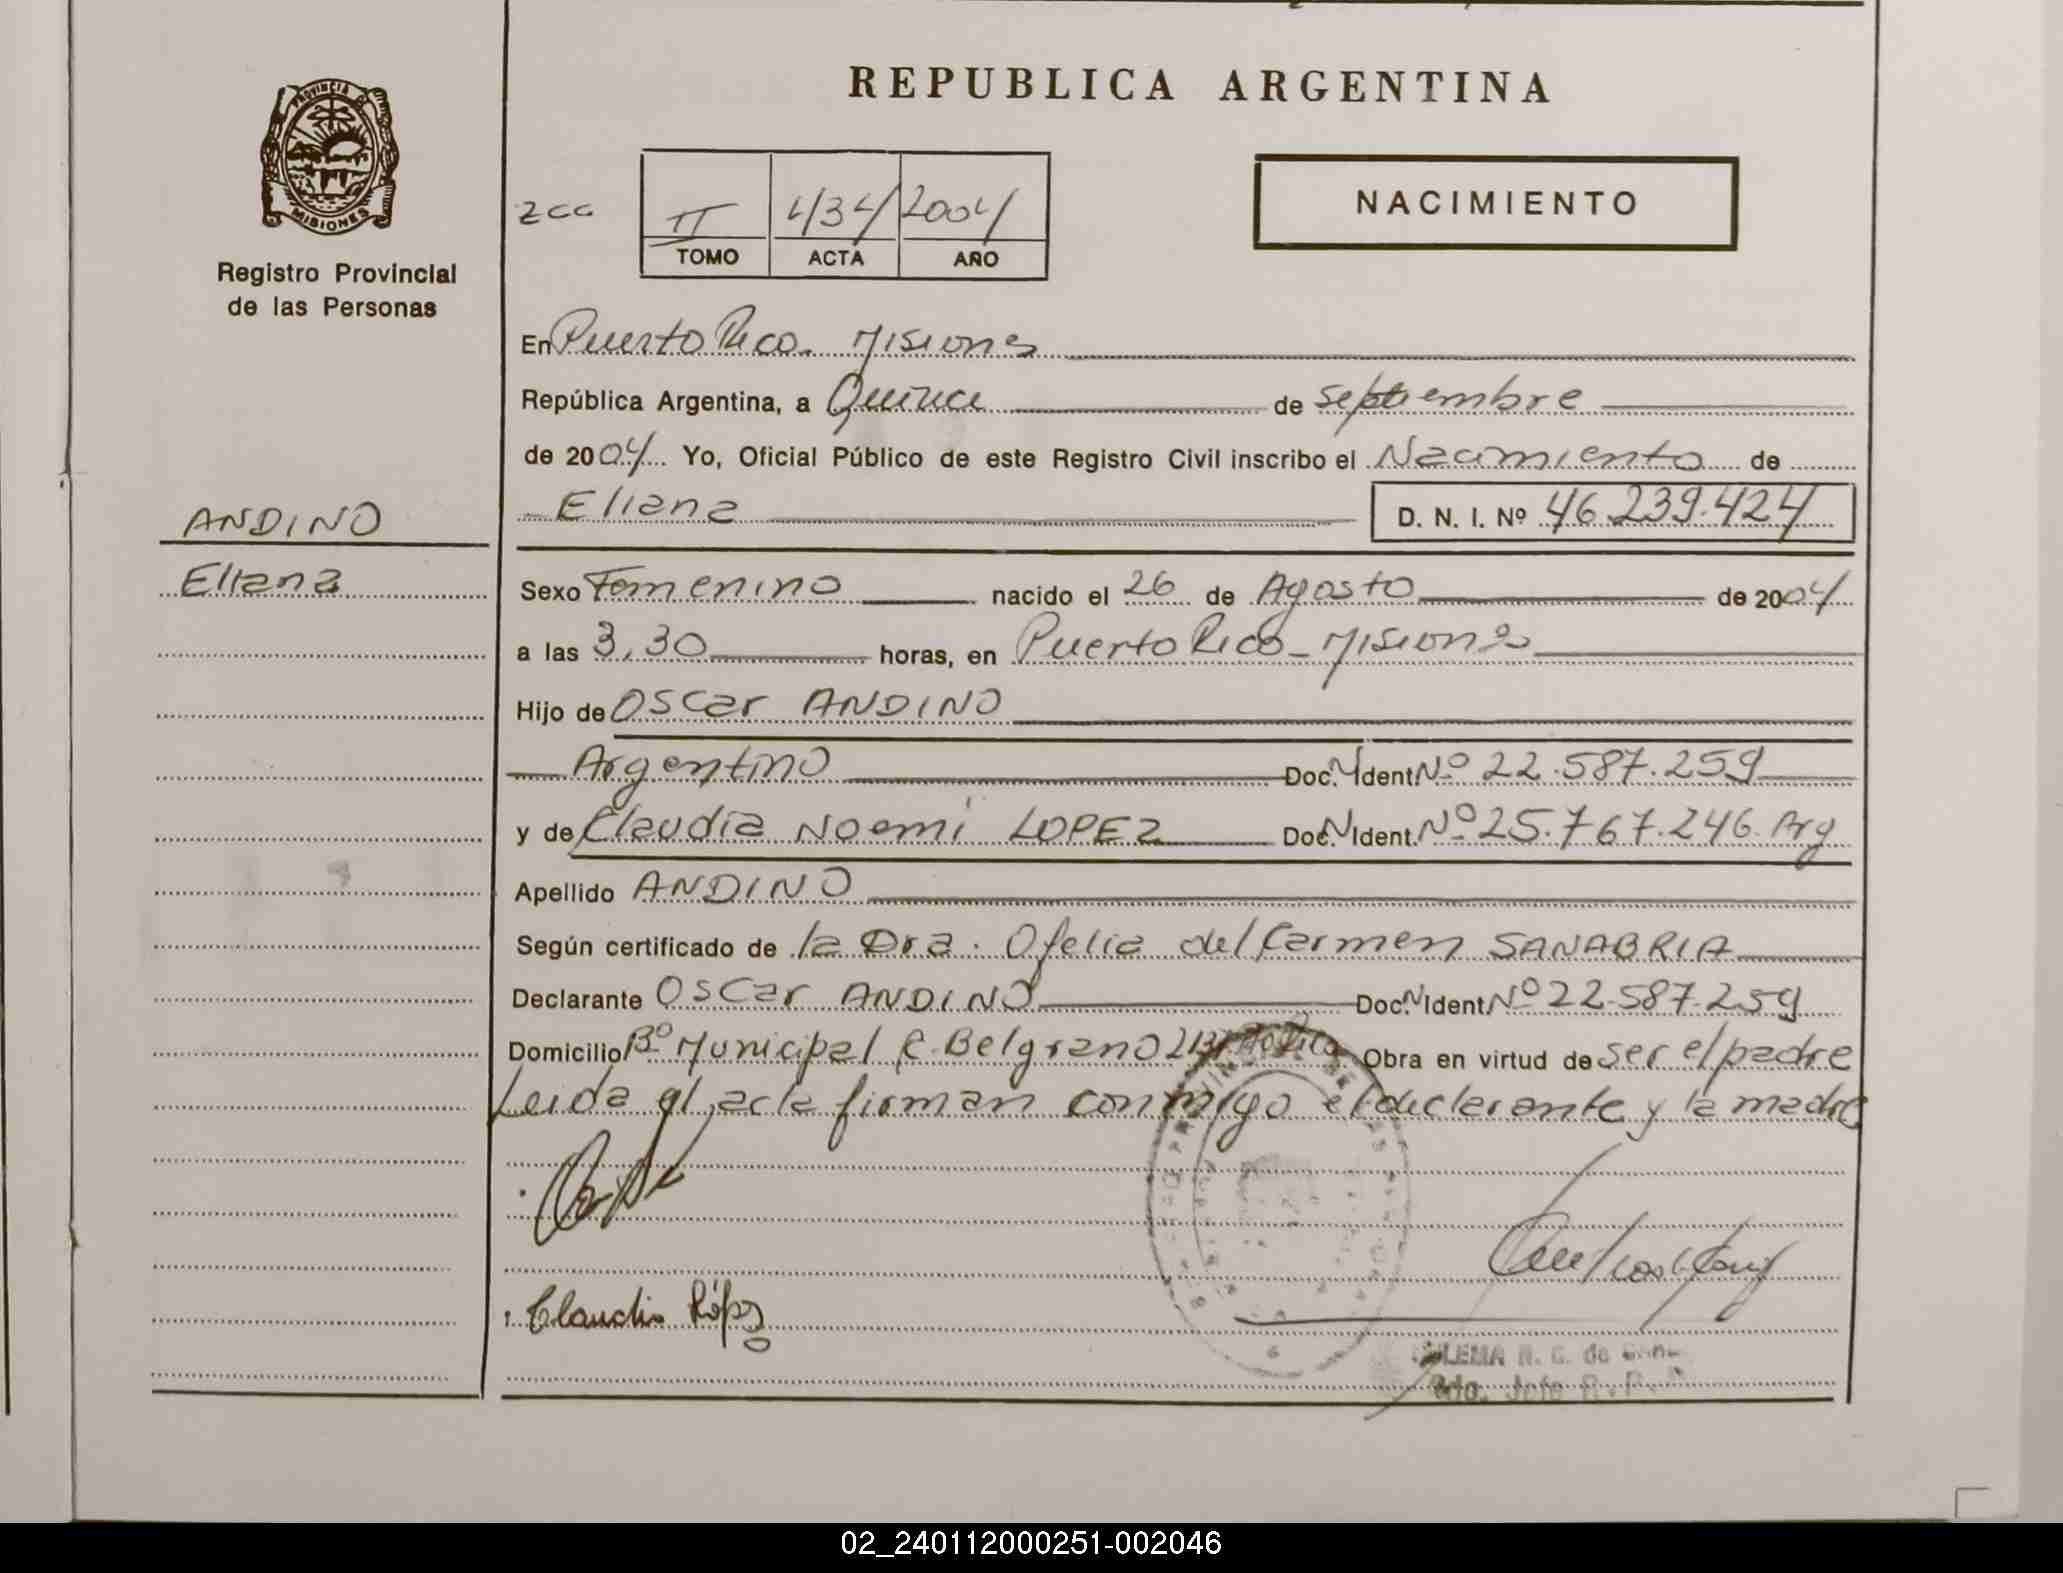 REPUBLICA ARGENTINA
PROVINCIA DE
MISIONES
Registro Provincial
de las Personas
200
II 434 2004
TOMO ACTA AÑO
NACIMIENTO
En Puerto Rico. Misiones
República Argentina, a Quince de septiembre
de 2004 Yo, Oficial Público de este Registro Civil inscribo el Nacimiento de
Eliana D. N. I. Nº 46.239.424
ANDINO
Eliana
Sexo Femenino nacido el 26 de Agosto de 2004
a las 3,30 horas, en Puerto Rico - Misiones
Hijo de Oscar ANDINO
Argentino Doc. N Ident. Nº 22.587.259
y de Claudia Noemi LOPEZ Doc. N Ident. Nº 25.767.246. Arg
Apellido ANDINO
Según certificado de la Dra. Ofelia del Carmen SANABRIA
Declarante Oscar ANDINO Doc. N Ident. Nº 22.587.259
Domicilio Bº Municipal C. Belgrano Obra en virtud de ser el padre
Leida el acta firman conmigo el declarante y la madre
Claudia López
N. G. de
Jefe R. P.
02_240112000251-002046